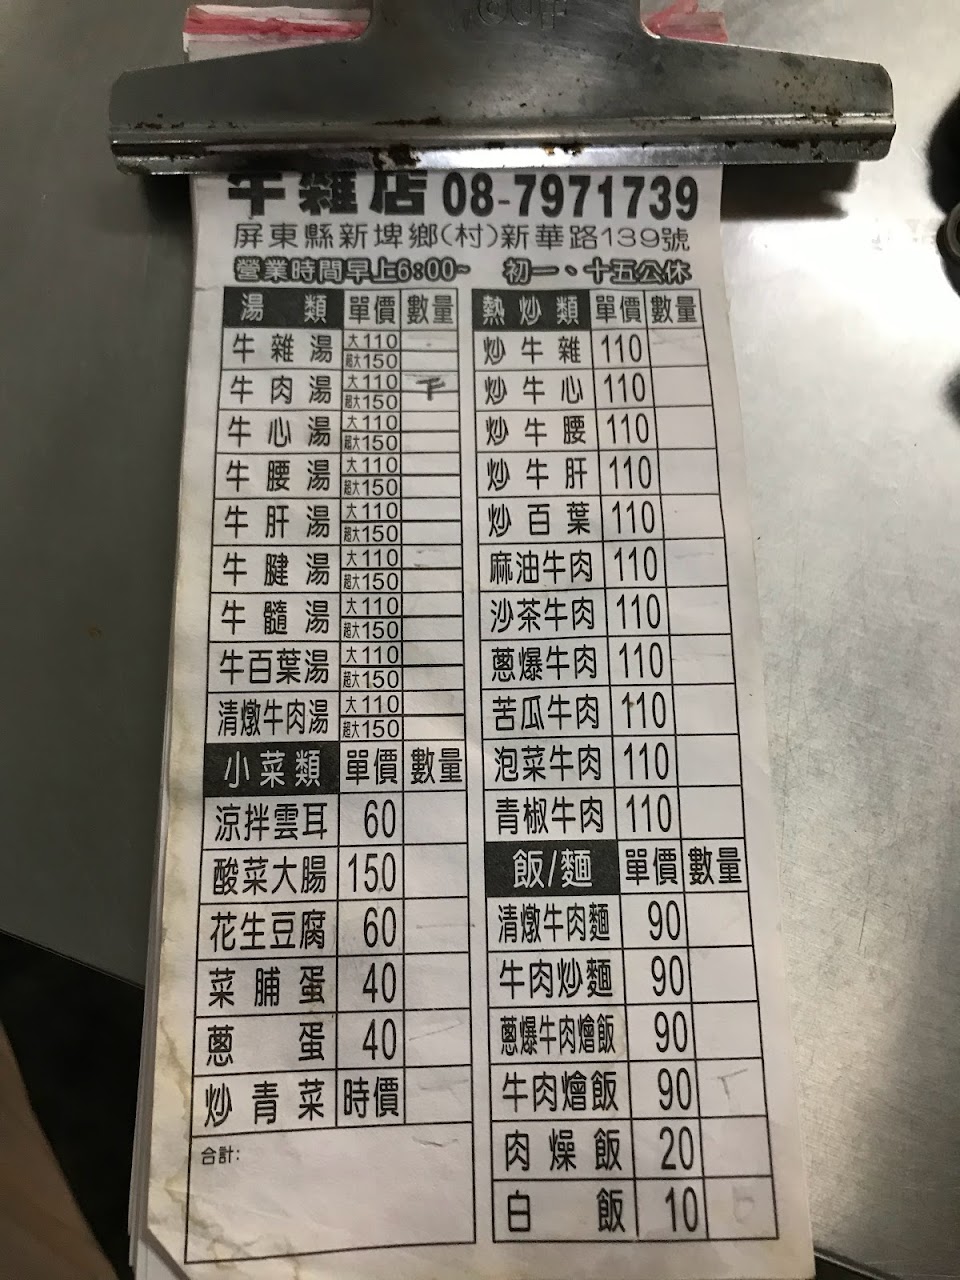 牛雜店 08-7971739
屏東縣新埤鄉(村)新華路139號
營業時間早上6:00~ 初一、十五公休
湯類 單價 數量
牛雜湯 大110
超大150
牛肉湯 大110
超大150
牛心湯 大110
超大150
牛腰湯 大110
超大150
牛肝湯 大110
超大150
牛腱湯 大110
超大150
牛髓湯 大110
超大150
牛百葉湯 大110
超大150
清燉牛肉湯 大110
超大150
小菜類 單價 數量
涼拌雲耳 60
酸菜大腸 150
花生豆腐 60
菜脯蛋 40
蔥蛋 40
炒青菜 時價
合計:
熱炒類 單價 數量
炒牛雜 110
炒牛心 110
炒牛腰 110
炒牛肝 110
炒百葉 110
麻油牛肉 110
沙茶牛肉 110
蔥爆牛肉 110
苦瓜牛肉 110
泡菜牛肉 110
青椒牛肉 110
飯/麵 單價 數量
清燉牛肉麵 90
牛肉炒麵 90
蔥爆牛肉燴飯 90
牛肉燴飯 90
肉燥飯 20
白飯 10